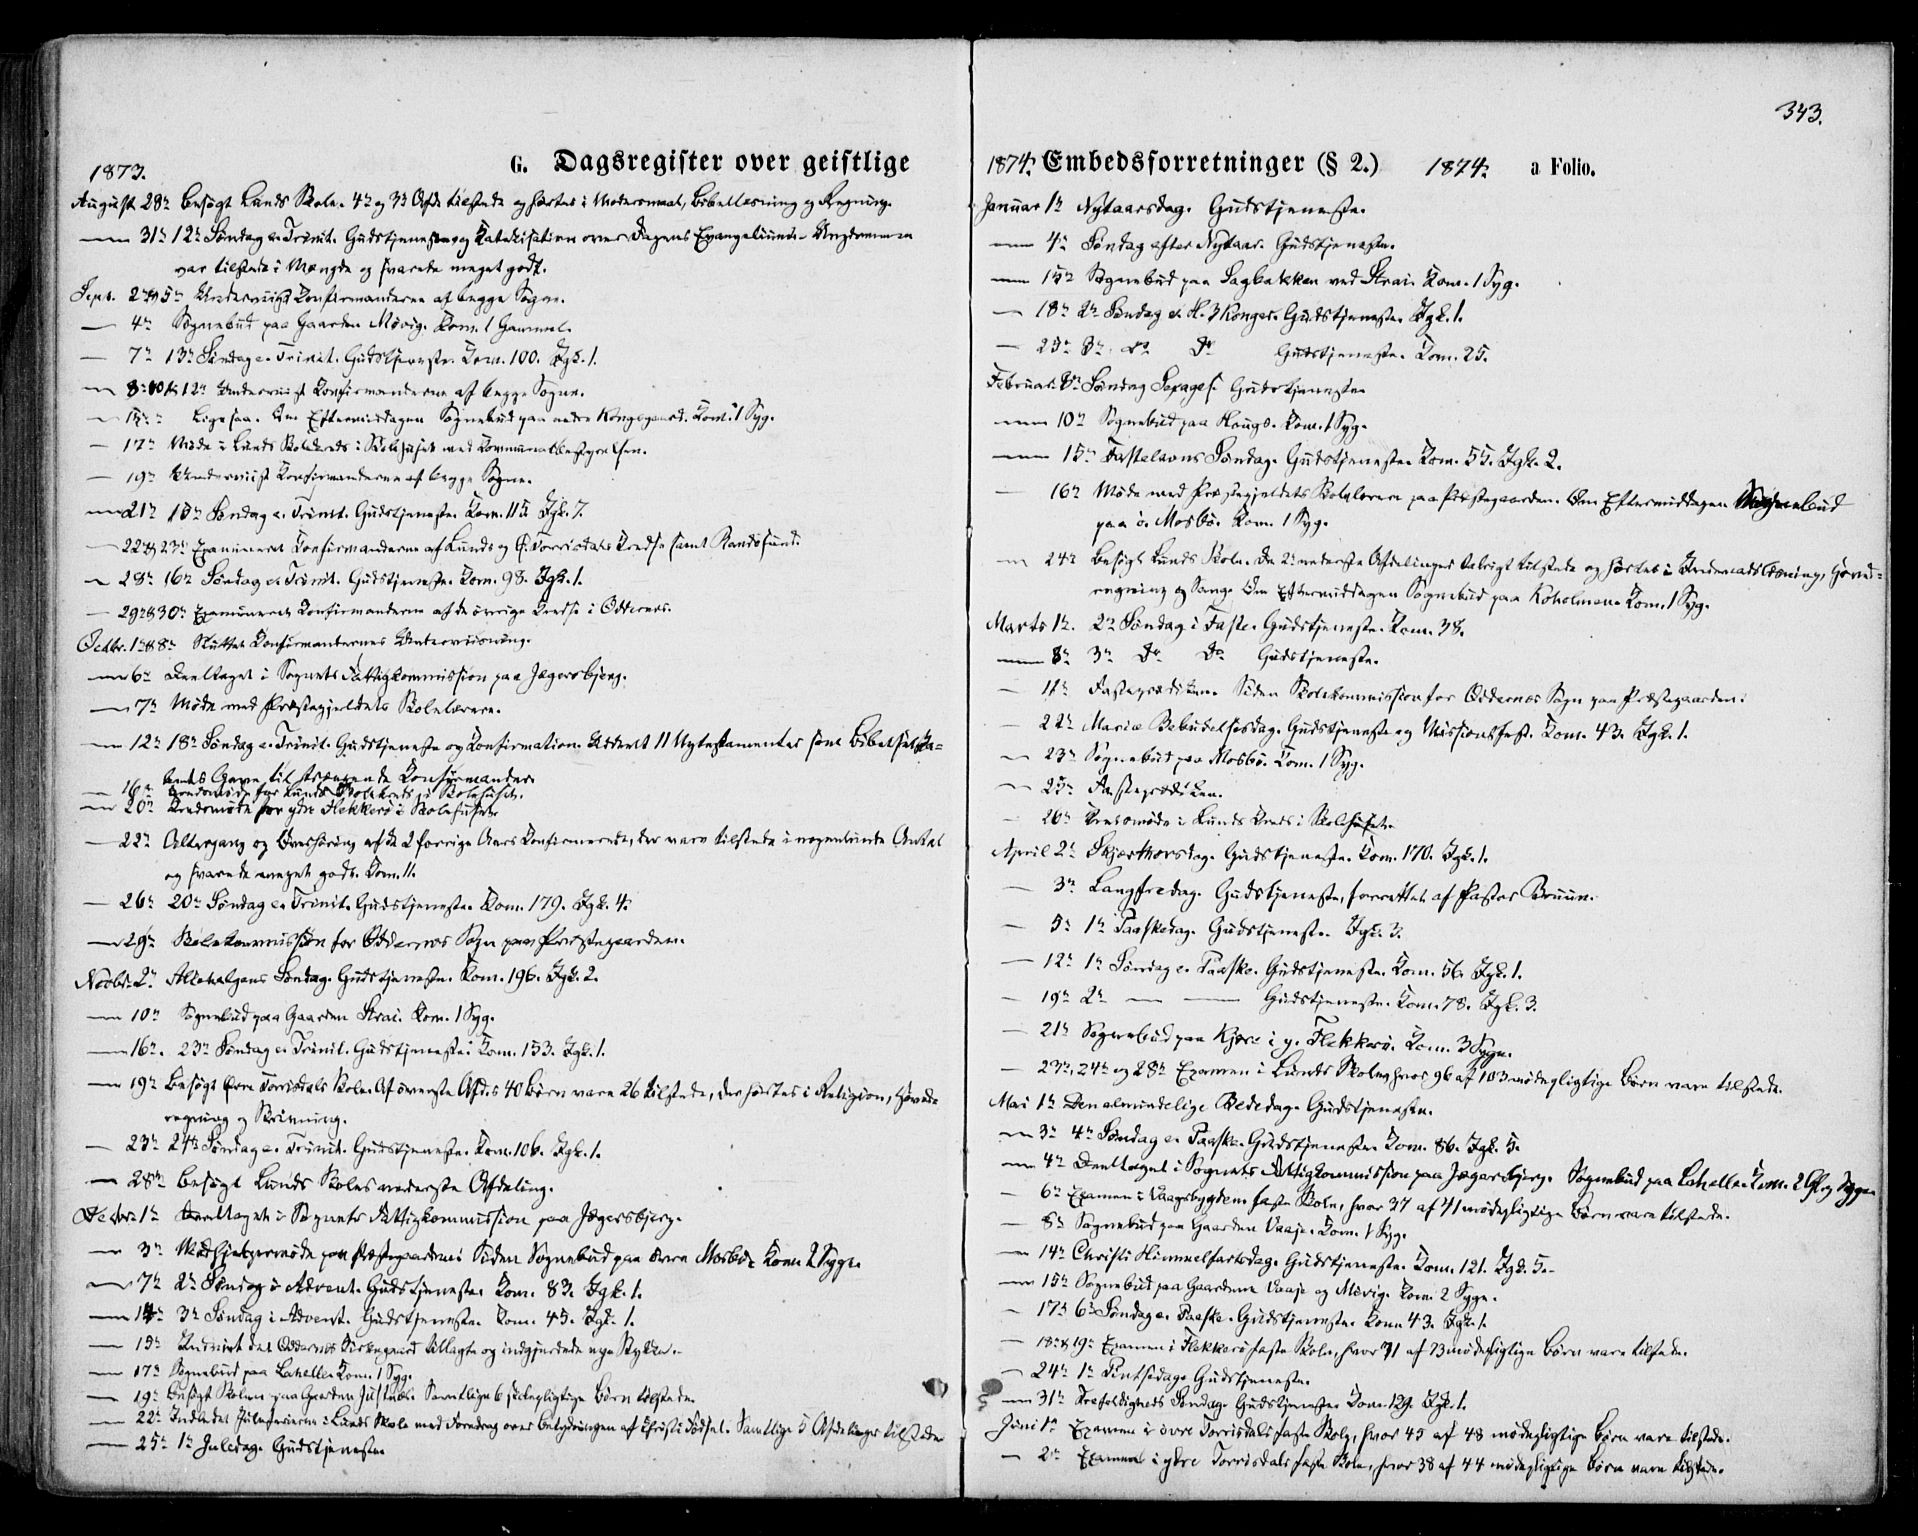 343.
G. Dagsregister over geistlige
1873.
August 28de besøgt Lunds Skole. 4de og 3die Afde tilstede og hørtes i Modersmaal, Bibellæsning og Regning.
— 31te 12te Søndag e. Trinit. Gudstjeneste og Katekisation over Dagens Evangelium. Ungdommen
var tilstede i Mængde og svarede meget godt.
Sept. 2den & 5te Underviist Konfirmanderne af begge Sogne.
— 4de Sognebud paa Gaarden Møvig. Kom. 1 Gammel.
— 7de 13de Søndag e. Trinit. Gudstjeneste. Kom. 100. Igk. 1.
— 8de 10de & 12te Underviist Konfirmanderne af begge Sogne.
— 15de Ligesaa. Om Eftermiddagen Sognebud paa nedre Kongsgaard. Kom. 1 Syg.
— 17de Møde i Lunds Skolekreds i Skolehuset med Kommunalbestyrelsen.
— 19de Underviist Konfirmanderne af begge Sogne.
— 21de 15de Søndag e. Trinit. Gudstjeneste. Kom. 115 Igk. 7.
— 22de & 23de Examineret Konfirmanderne af Lunds og Ø. Torrisdals Kredse samt Randøsund.
— 28de 16de Søndag e. Trinit. Gudstjeneste. Kom. 98. Igk. 1.
— 29de & 30te Examineret Konfirmanderne af de øvrige Kredse i Oddernes.
Octbr. 1ste & 8de Sluttet Konfirmandernes Underviisning.
— 6te Deeltaget i Sognets Fattigkommission paa Jægersbjerg.
— 7de Møde med Præstegjeldets Skolelærere.
— 12te 18de Søndag e. Trinit. Gudstjeneste og Konfirmation. Uddeelt 11 Nytestamenter som Bibelselska-
bets Gave til trængende Konfirmander.
— 16de Kredsmøde for Lunds Skolekreds i Skolehuset.
— 20de Kredsmøde for ydre Flekkerø i Skolehuset.
— 22de Altergang og Overhøring af de 2 forrige Aars Konfirmerede, der vare tilstede i nogenlunde Antal
og svarede meget godt. Kom. 11.
— 26de 20de Søndag e. Trinit. Gudstjeneste. Kom. 179. Igk. 4.
— 29de Skolekommission for Oddernes Sogn paa Præstegaarden.
Novbr. 2den Allehelgens Søndag. Gudstjeneste. Kom. 196. Igk. 2.
— 10de Sognebud paa Gaarden Strai. Kom. 1 Syg.
— 16de. 23de Søndag e. Trinit. Gudstjeneste. Kom. 153. Igk. 1.
— 19de besøgt øvre Torrisdals Skole. Af øverste Afd.s 40 Børn vare 26 tilstede, der hørtes i Religion, Hoved-
regning og Skrivning.
— 23de 24de Søndag e. Trinit. Gudstjeneste. Kom. 106. Igk. 1.
— 28de besøgt Lunds Skoles nederste Afdeling.
Decbr. 1ste Deeltaget i Sognets Fattigkommission paa Jægersbjerg.
— 3die Medhjelpermøde paa Præstegaarden. Siden Sognebud paa øvre Mosbø. Kom. 2 Syge.
— 7de 2den Søndag i Advent. Gudstjeneste. Kom. 83. Igk. 1.
— 14de 3die Søndag i Advent. Gudstjeneste. Kom. 45. Igk. 1.
— 15de Indviet det Oddernes Kirkegaard tillagte og indgjerdede nye Stykke.
— 17de Sognebud paa Lahelle. Kom. 1 Syg.
— 19de besøgt Skolen paa Gaarden Justvik. Samtlige 6 skolepligtige Børn tilstede.
— 22de Indledet Juleferierne i Lunds Skole med Foredrag over Betydningen af Christi Fødsel. Samtlige 5 Afdelinger tilstede.
— 25de 1ste Juledag. Gudstjeneste.
1874. Embedsforretninger (§ 2.) 1874. a Folio.
Januar 1ste Nytaarsdag. Gudstjeneste.
— 4de Søndag efter Nytaar. Gudstjeneste.
— 15de Sognebud paa Sagbakken ved Strai. Kom. 1 Syg.
— 18de 2den Søndag e. H. 3 Konger. Gudstjeneste. Igk. 1.
— 25de 3die do do Gudstjeneste. Kom. 25.
Februar 8de Søndag Sexages. Gudstjeneste.
— 10de Sognebud paa Haugs. Kom. 1 Syg.
— 15de Fastelavns Søndag. Gudstjeneste. Kom. 55. Igk. 2.
— 16de Møde med Præstegjeldets Skolelærere paa Præstegaarden. Om Eftermiddagen Sognebud
paa ø. Mosbø. Kom. 1 Syg.
— 24de besøgt Lunds Skole. De 2 nederste Afdelinger talrigt tilstede og hørtes i Indenadslæsning, Hoved-
regning og Sang. Om Eftermiddagen Sognebud paa Koholmen. Kom. 1 Syg.
Marts 1ste. 2den Søndag i Faste. Gudstjeneste. Kom. 38.
— 8de 3die Do Do Gudstjeneste.
— 11te Fasteprædiken. Siden Skolekommission for Oddernes Sogn paa Præstegaarden.
— 22de Mariæ Bebudelsesdag. Gudstjeneste og Missionsfest. Kom. 43. Igk. 1.
— 23de Sognebud paa Mosbø. Kom. 1 Syg.
— 25de Fasteprædiken.
— 26de Kredsmøde i Lunds Kreds i Skolehuset.
April 2den Skjærthorsdag. Gudstjeneste. Kom. 170. Igk. 1.
— 3die Langfredag. Gudstjeneste, forrettet af Pastor Bruun.
— 5te 1ste Paaskedag. Gudstjeneste. Igk. 3.
— 12te 1ste Søndag e. Paaske. Gudstjeneste. Kom. 56. Igk. 1.
— 19de 2den — — Gudstjeneste. Kom. 78. Igk. 3.
— 21de Sognebud paa Kjære i y. Flekkerø. Kom. 3 Syge.
— 23de, 24de og 28de Examen i Lunds Skole, hvor 96 af 103 mødepligtige Børn vare tilstede.
Mai 1ste Den almindelige Bededag. Gudstjeneste.
— 3die 4de Søndag e. Paaske. Gudstjeneste. Kom. 86. Igk. 5.
— 4de Deeltaget i Sognets Fattigkommission paa Jægersbjerg. Sognebud paa Lahelle. Kom. 2 Syge.
— 6te Examen i Vaagsbygdens faste Skole, hvor 37 af 41 mødepligtige Børn vare tilstede.
— 8de Sognebud paa Gaarden Vaaje. Kom. 1 Syg.
— 14de Christi Himmelfartsdag. Gudstjeneste. Kom. 121. Igk. 5.
— 15de Sognebud paa Gaardene Vaaje og Møvig. Kom. 2 Syge.
— 17de 6te Søndag e. Paaske. Gudstjeneste. Kom. 43. Igk. 1.
— 18de & 19de Examen i Flekkerø faste Skole, hvor 71 af 73 mødepligtige Børn vare tilstede.
— 24de 1ste Pintsedag. Gudstjeneste.
— 31te Trefoldigheds Søndag. Gudstjeneste. Kom. 129. Igk. 1.
Juni 1ste Examen i øvre Torrisdals faste Skole, hvor 45 af 48 mødepligtige Børn vare tilstede.
— 2den Examen i ydre Torrisdals faste Skole, hvor 38 af 44 mødepligtige Børn vare tilstede.